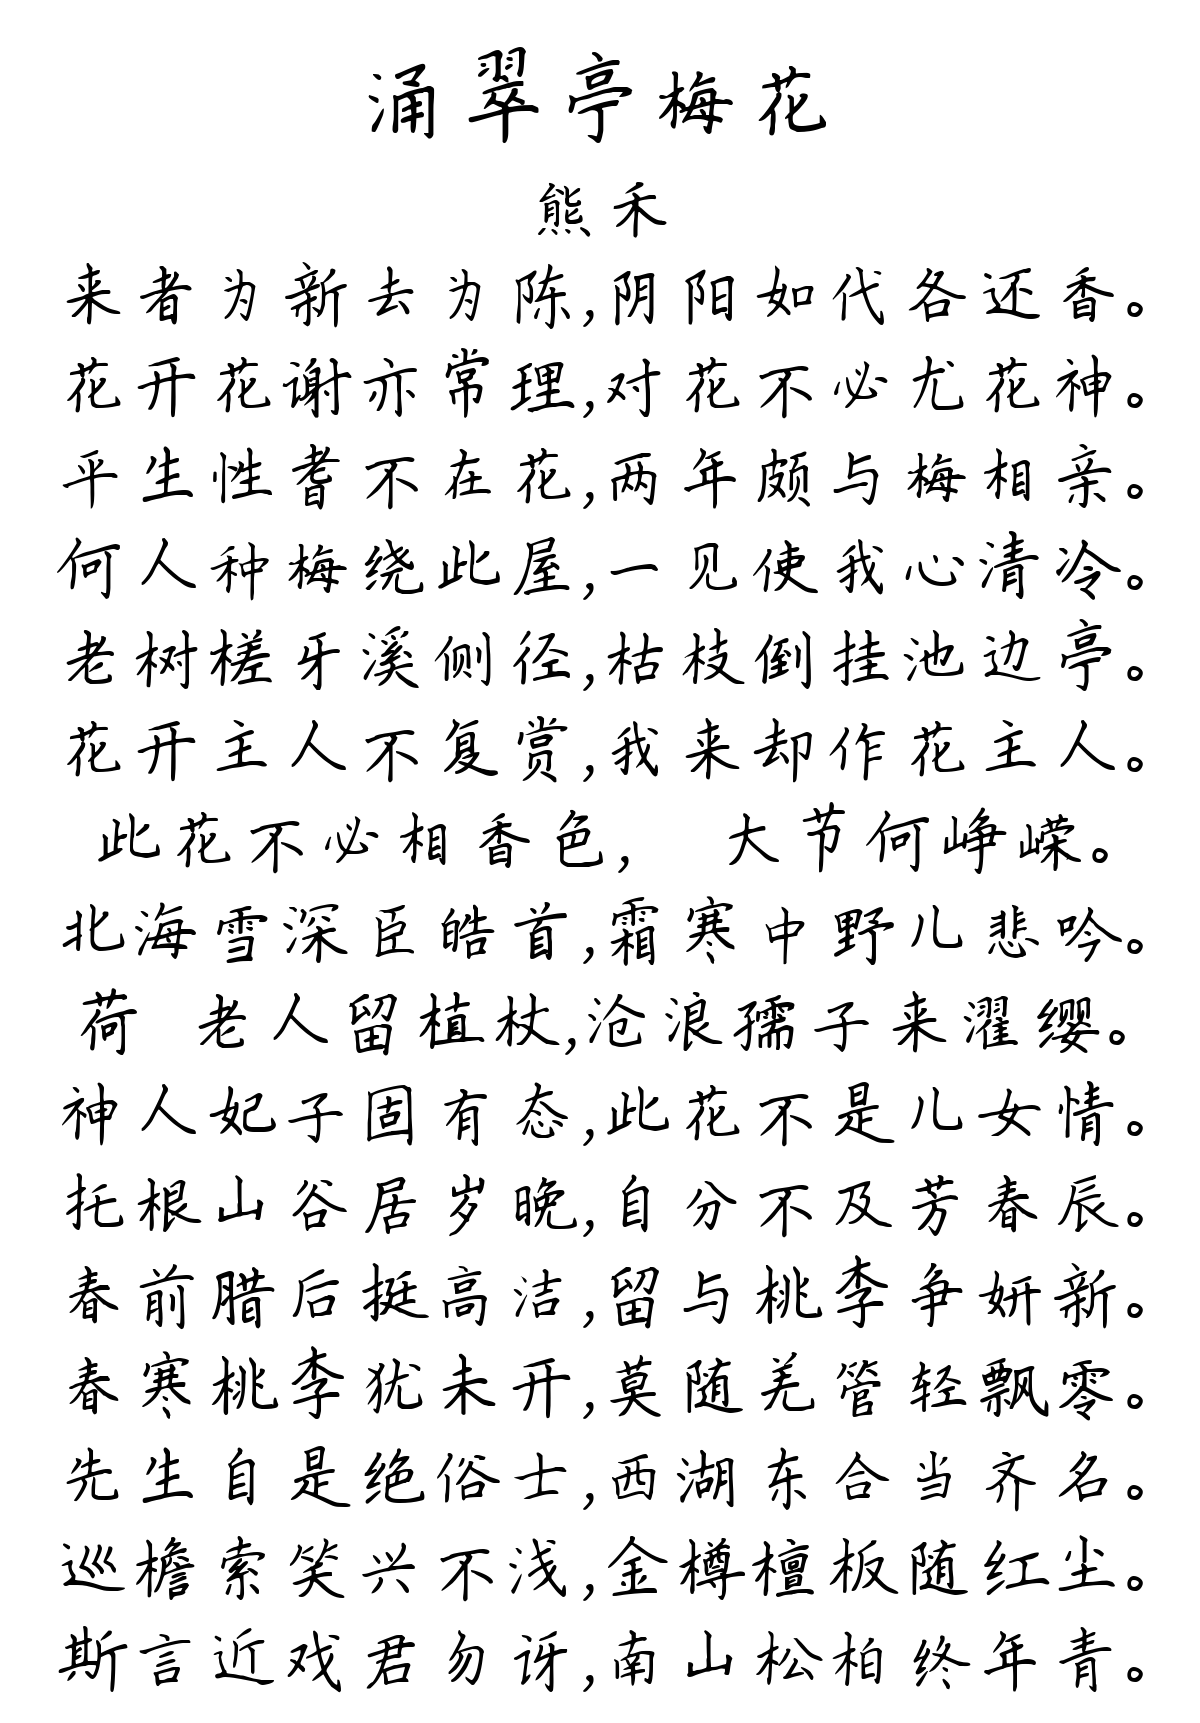 涌翠亭梅花
熊禾
来者为新去为陈,阴阳如代各还香。
花开花谢亦常理,对花不必尤花神。
平生性耆不在花,两年颇与梅相亲。
何人种梅绕此屋,一见使我心清冷。
老树槎牙溪侧径,枯枝倒挂池边亭。
花开主人不复赏,我来却作花主人。
此花不必相香色, 大节何峥嵘。
北海雪深臣皓首,霜寒中野儿悲吟。
荷 老人留植杖,沧浪孺子来濯缨。
神人妃子固有态,此花不是儿女情。
托根山谷居岁晚,自分不及芳春辰。
春前腊后挺高洁,留与桃李争妍新。
春寒桃李犹未开,莫随羌管轻飘零。
先生自是绝俗士,西湖东合当齐名。
巡檐索笑兴不浅,金樽檀板随红尘。
斯言近戏君勿讶,南山松柏终年青。